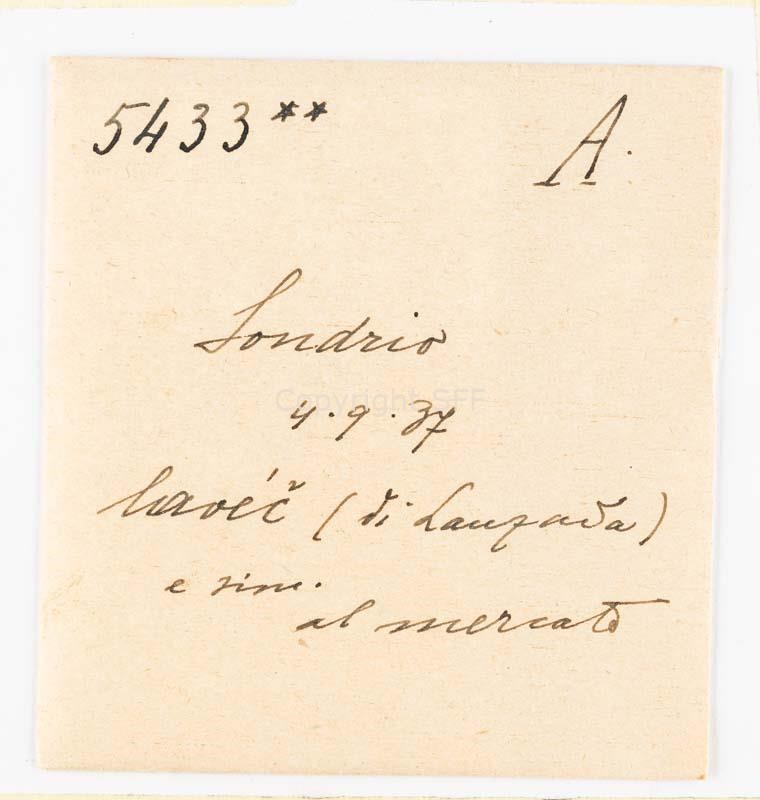 5433** A.
Sondrio
Copyright SFF
4.9.37
lavéč (di Lanzada)
e sim.
al mercato